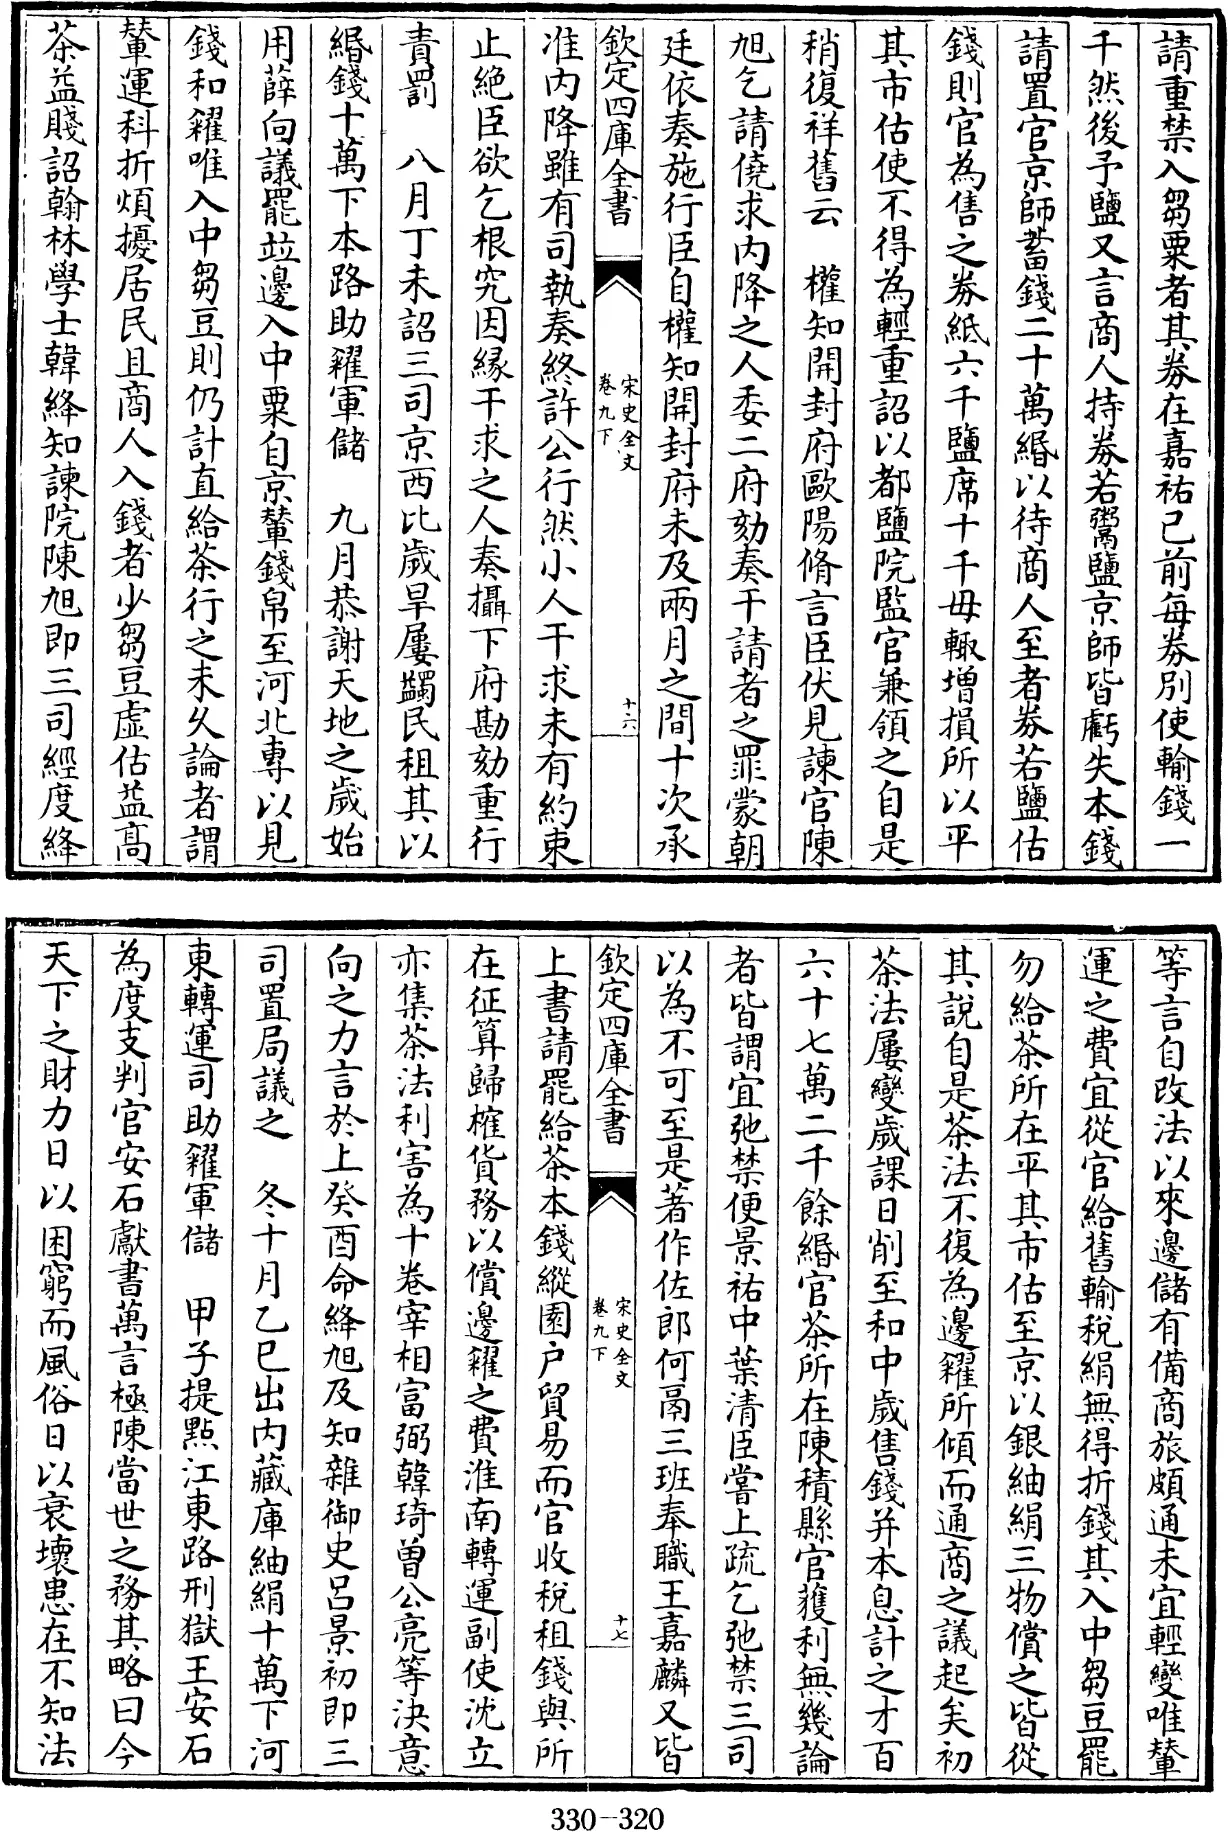 請重禁入芻粟者其券在嘉祐已前每券别使輸錢一
千然後予鹽又言商人持券若鬻鹽京師皆虧失本錢
請置官京師蓄錢二十萬緡以待商人至者券若鹽估
錢則官為售之券紙六千鹽席十千毋輙增損所以平
其市估使不得為輕重詔以都鹽院監官兼領之自是
稍復祥舊云　權知開封府歐陽脩言臣伏見諫官陳
旭乞請僥求内降之人委二府劾奏干請者之罪蒙朝
廷依奏施行臣自權知開封府未及兩月之間十次承
欽定四庫全書
宋史全文
卷九下
十六
准内降雖有司執奏終許公行然小人干求未有約束
止絶臣欲乞根究因縁干求之人奏攝下府勘劾重行
責罰　八月丁未詔三司京西比歲旱屢蠲民租其以
緡錢十萬下本路助糴軍儲　九月恭謝天地之歲始
用薛向議罷竝邊入中粟自京輦錢帛至河北專以見
錢和糴唯入中芻豆則仍計直給茶行之未久論者謂
輦運科折煩擾居民且商人入錢者少芻豆虚估益髙
茶益賤詔翰林學士韓絳知諫院陳旭即三司經度絳
等言自改法以來邊儲有備商旅頗通未宜輕變唯輦
運之費宜從官給舊輸稅絹無得折錢其入中芻豆罷
勿給茶所在平其市估至京以銀紬絹三物償之皆從
其說自是茶法不復為邊糴所傾而通商之議起矣初
茶法屢變歲課日削至和中歲售錢并本息計之才百
六十七萬二千餘緡官茶所在陳積縣官獲利無幾論
者皆謂宜弛禁便景祐中葉清臣嘗上疏乞弛禁三司
以為不可至是著作佐郎何鬲三班奉職王嘉麟又皆
欽定四庫全書
宋史全文
卷九下
十七
上書請罷給茶本錢縱園户貿易而官收税租錢與所
在征算歸榷貨務以償邊糴之費淮南轉運副使沈立
亦集茶法利害為十卷宰相富弼韓琦曾公亮等決意
向之力言於上癸酉命絳旭及知雜御史呂景初即三
司置局議之　冬十月乙巳出内藏庫紬絹十萬下河
東轉運司助糴軍儲　甲子提點江東路刑獄王安石
為度支判官安石獻書萬言極陳當世之務其略曰今
天下之財力日以困窮而風俗日以衰壞患在不知法
330-320